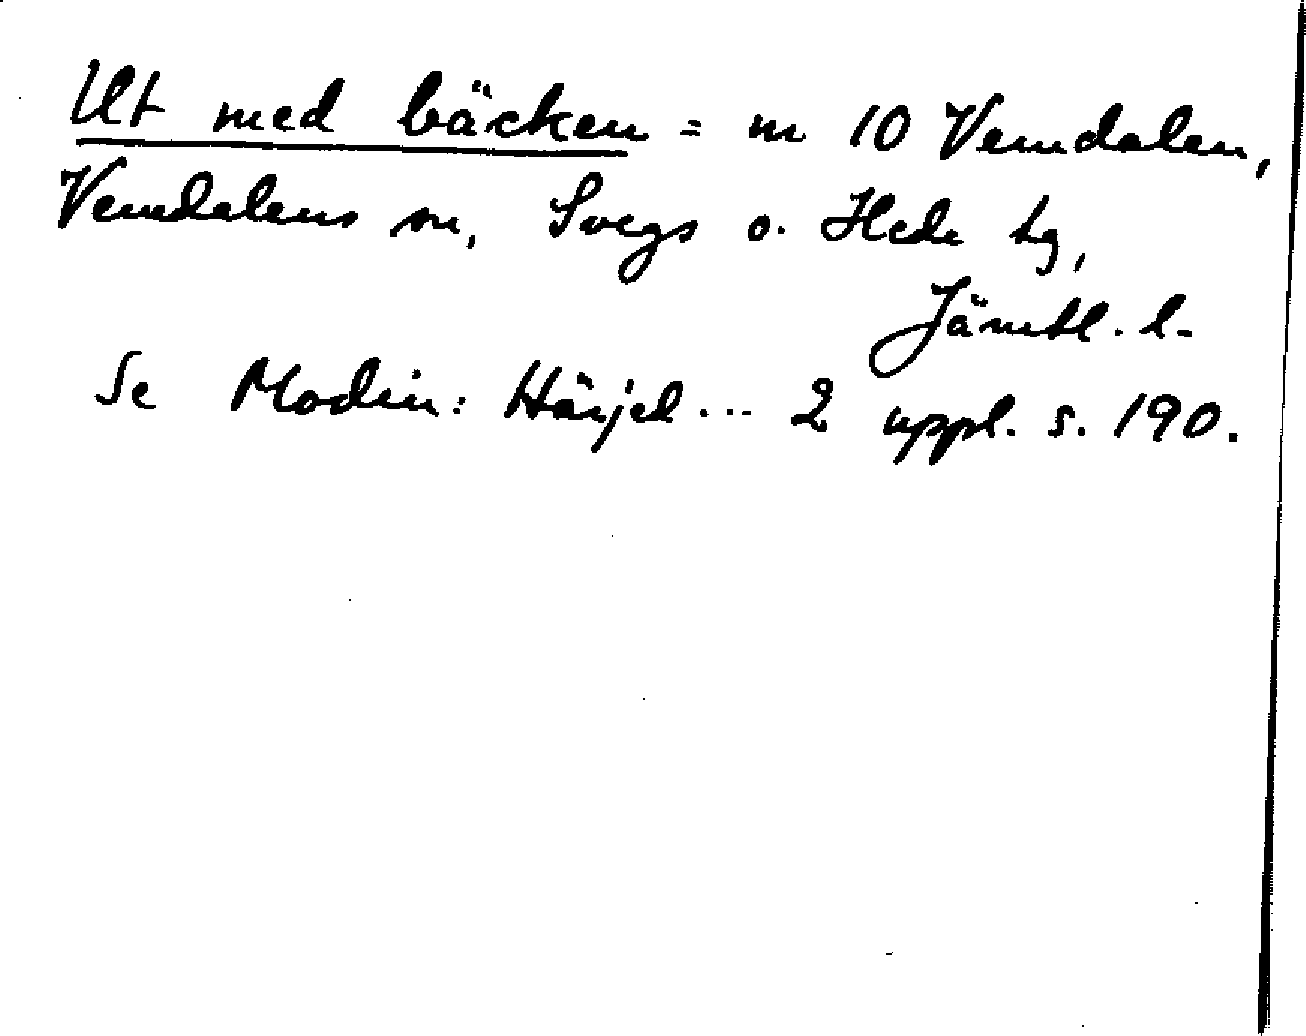 Ut med bäcken = nr 10 Vemdalen,
Vemdalens sn, Svegs o. Hede tg,
Jämtl. l.
Se Modin: Härjed ... 2 uppl. s. 190.